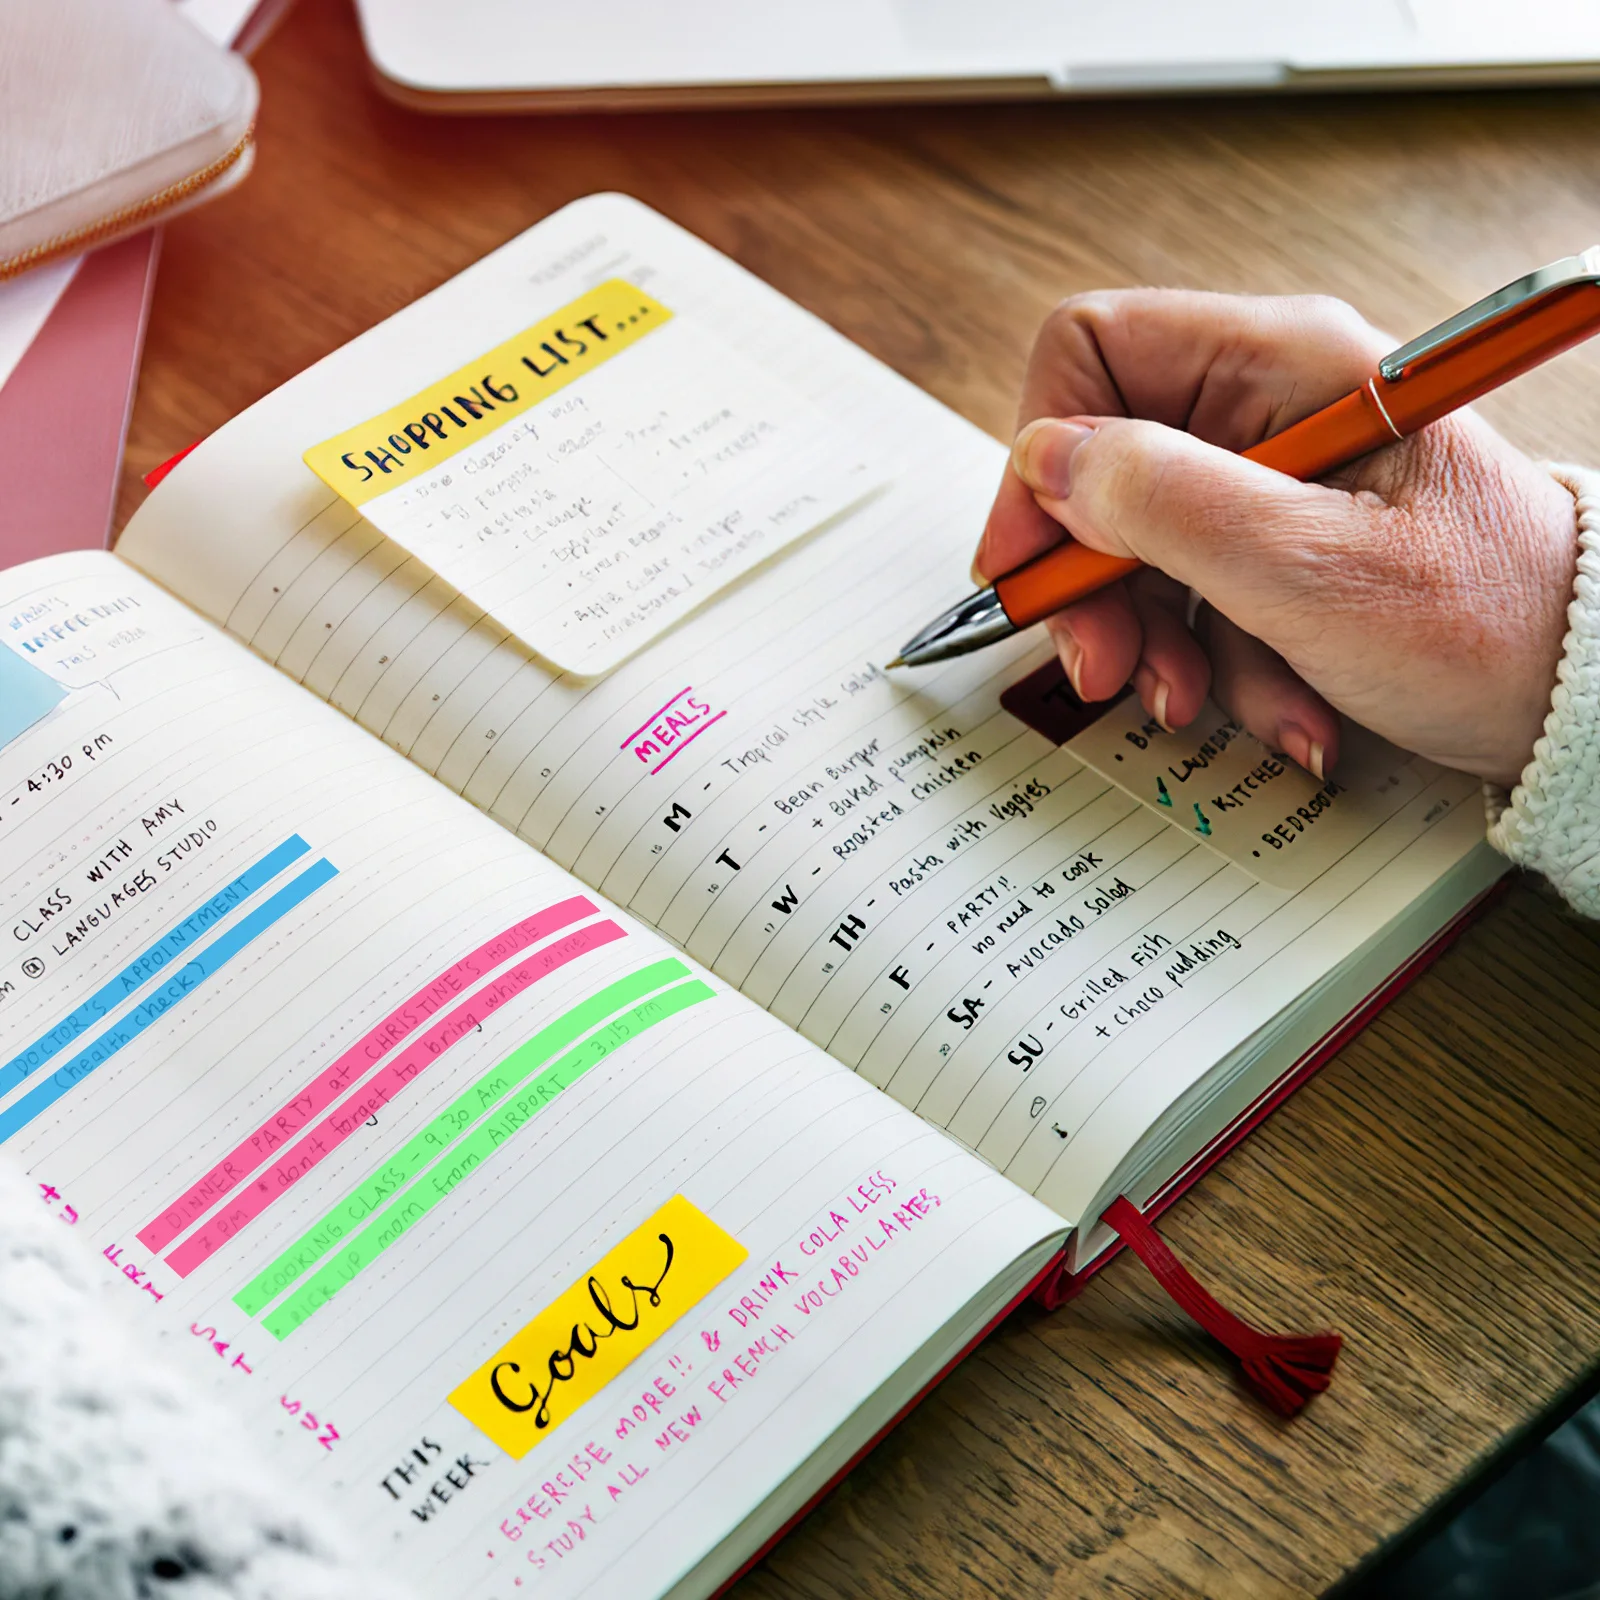 WHAT'S
IMPORTANT
THIS WEEK
- 4:30 PM
CLASS WITH AMY
@ LANGUAGES STUDIO
DOCTOR'S APPOINTMENT
(health check)
FRI
• DINNER PARTY at CHRISTINE'S HOUSE
7 PM * don't forget to bring white wine!
SAT
• COOKING CLASS - 9.30 AM
• PICK UP mom from AIRPORT - 3.15 PM
SUN
THIS
WEEK
Goals
• EXERCISE MORE!! & DRINK COLA LESS
• STUDY ALL NEW FRENCH VOCABULARIES
SHOPPING LIST...
MEALS
M - Tropical style salad
T - Bean Burger
+ Baked pumpkin
W - Roasted chicken
TH - Pasta with Veggies
F - PARTY!!
no need to cook
SA - Avocado Salad
SU - Grilled Fish
+ choco pudding
T
• BAT
✓ LAUNDRY
✓ KITCHEN
• BEDROOM